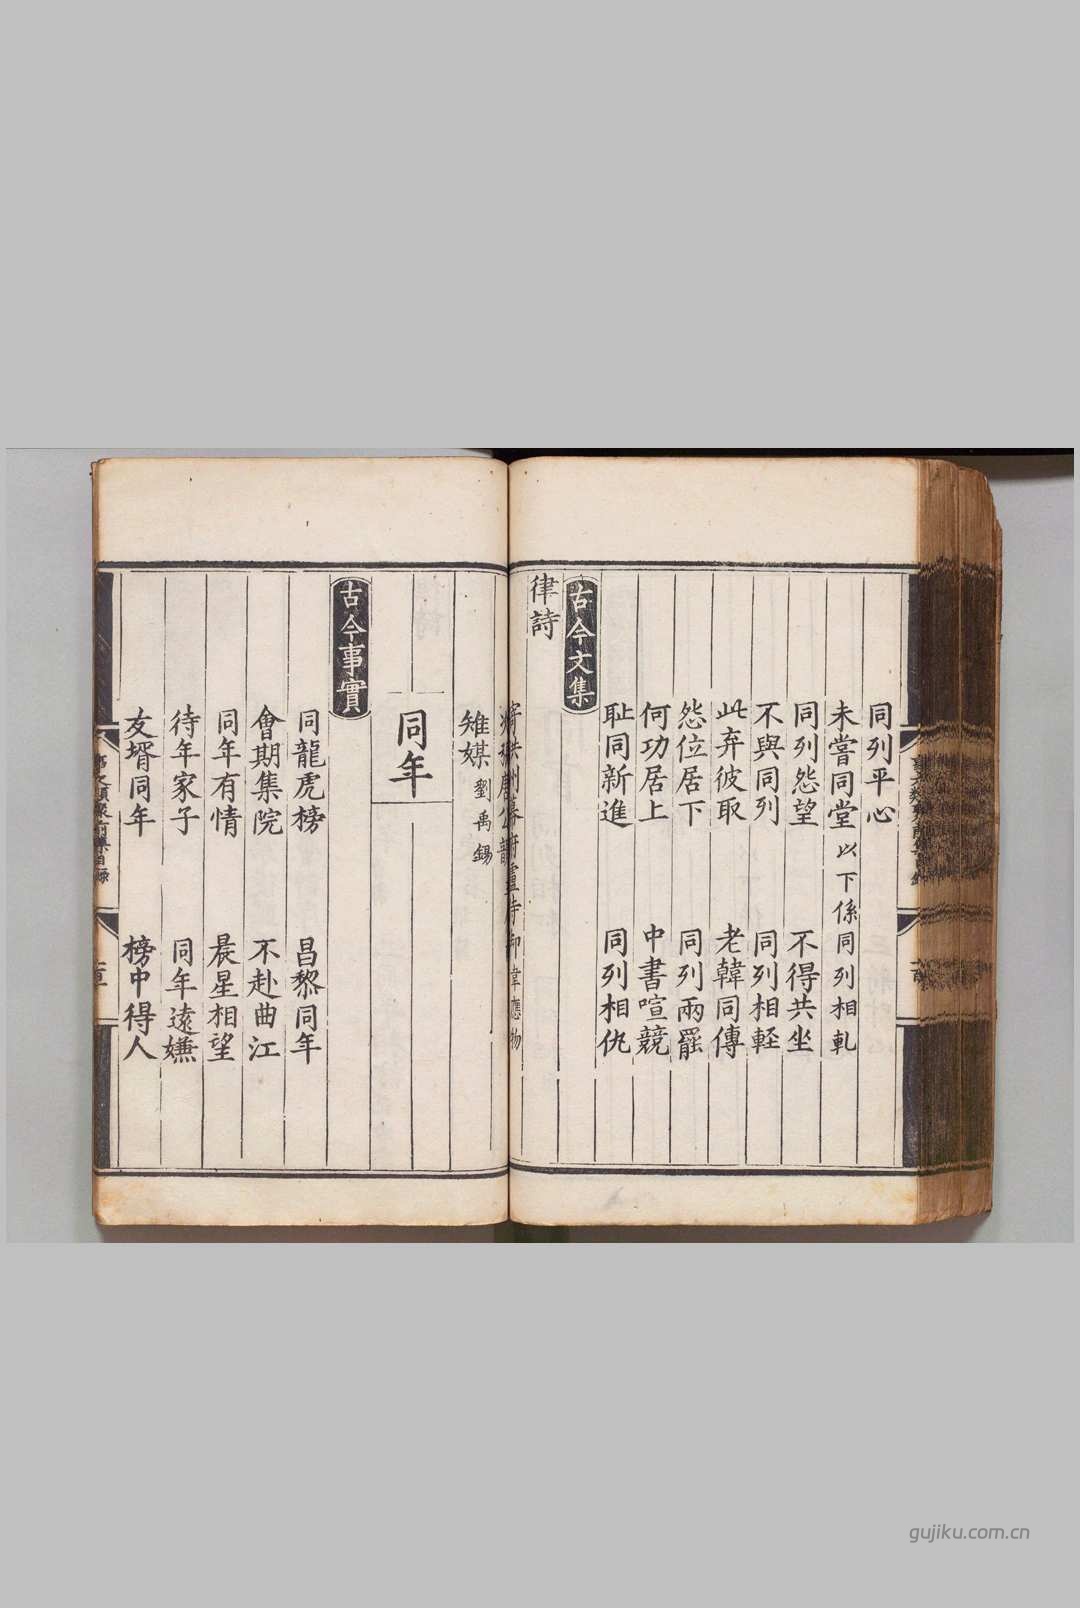 同列平心
未嘗同堂 以下係同列相軋
同列怨望 不得共坐
不與同列 同列相輊
此弃彼取 老韓同傳
怨位居下 同列兩罷
何功居上 中書喧競
耻同新進 同列相仇
古今文集
律詩
雉媒 劉禹錫
同年
古今事實
同龍虎榜 昌黎同年
會期集院 不赴曲江
同年有情 晨星相望
待年家子 同年遠嫌
友壻同年 榜中得人
gujiku.com.cn